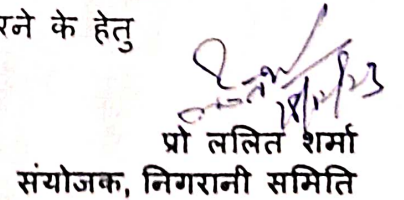 रने के हेतु
प्रो ललित शर्मा
संयोजक, निगरानी समिति